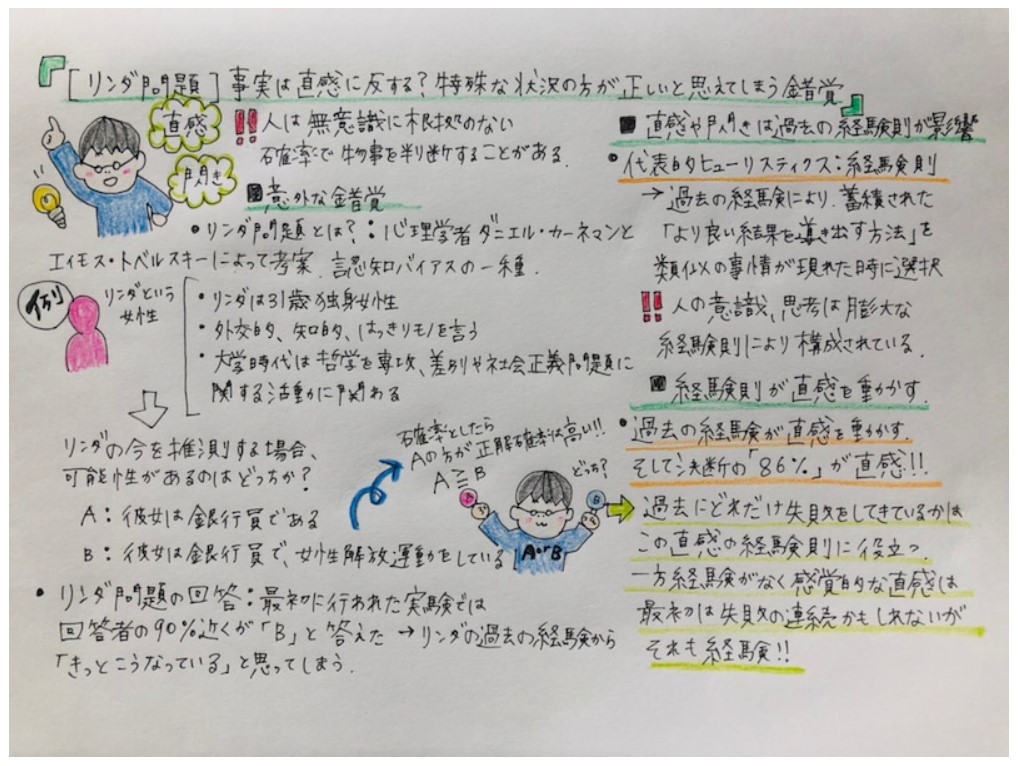 『[リンダ問題]事実は直感に反する?特殊な状況の方が正しいと思えてしまう錯覚』
直感
閃き
!!人は無意識に根拠のない
確率で物事を判断することがある.
■意外な錯覚
•リンダ問題とは?:心理学者ダニエル・カーネマンと
エイモス・トベルスキーによって考案.認知バイアスの一種.
例
リンダという
女性
・リンダは31歳独身女性
・外交的、知的、はっきりモノを言う
・大学時代は哲学を専攻、差別や社会正義問題に
関する活動に関わる
リンダの今を推測する場合、
可能性があるのはどっちか?
A:彼女は銀行員である
B:彼女は銀行員で、女性解放運動をしている
確率としたら
Aの方が正解確率は高い!!
A≧B
どっち?
A
B
AorB
•リンダ問題の回答:最初に行われた実験では
回答者の90%近くが「B」と答えた→リンダの過去の経験から
「きっとこうなっている」と思ってしまう.
■直感や閃きは過去の経験則が影響
•代表的ヒューリスティクス:経験則
→過去の経験により.蓄積された
「より良い結果を導き出す方法」を
類似の事情が現れた時に選択
!!人の意識、思考は膨大な
経験則により構成されている.
■経験則が直感を動かす.
•過去の経験が直感を動かす.
そして決断の「86%」が直感!!
過去にどれだけ失敗をしてきているかは
この直感の経験則に役立つ.
一方経験がなく感覚的な直感は
最初は失敗の連続かもしれないが
それも経験!!